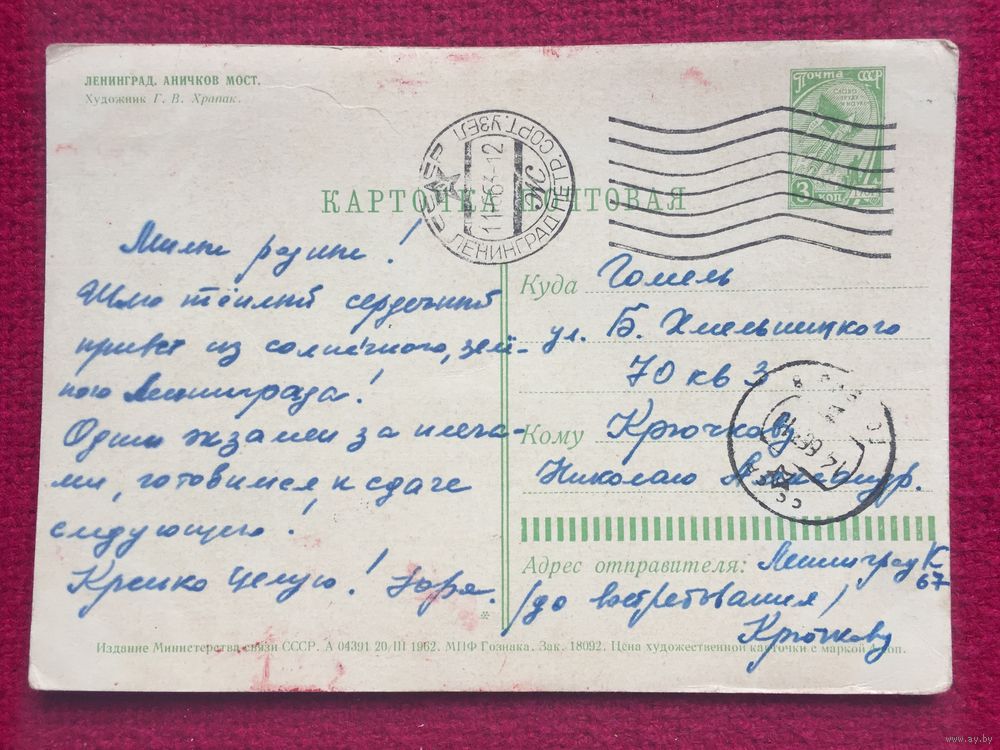 ЛЕНИНГРАД. АНИЧКОВ МОСТ.
Художник Г. В. Храпак.
ПОЧТА СССР
3 КОП
СССР
ЛЕНИНГРАД ПЕТР. СОРТ. УЗЕЛ
КАРТОЧКА ПОЧТОВАЯ
Милые родные!
Шлю тёплый сердечный
привет из солнечного, зелё-
ного Ленинграда!
Один экзамен за плеча-
ми, готовимся к сдаче
следующего!
Крепко целую! Боря.
Куда Гомель
ул. Б. Хмельницкого
70 кв 3
Кому Крючкову
Николаю
Адрес отправителя: Ленинград К
67
/до востребования/
Крючкову
Издание Министерства связи СССР. А 04391 20/III 1962. МПФ Гознака. Зак. 18092. Цена художественной карточки с маркой 4 коп.
www.ay.by